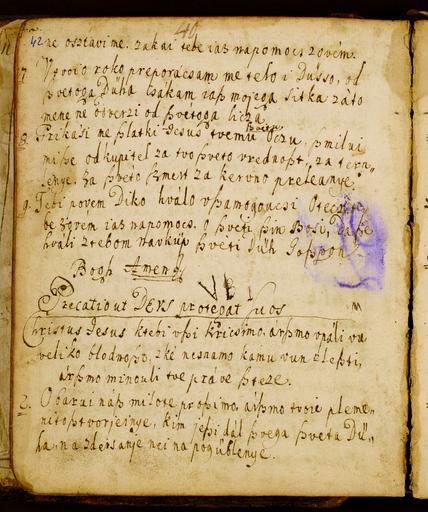 49
42 ne osztavi me. zakai tebe ias napomocs zovém.
7. V tvoio roko preporacsam me telo i Dusso, od
szvetoga Duha csakam iasz mojega sitka zato
mene ne otverzi od szvetoga licza.
8. Prikasi me szlatki Jesus tvemu szvetu Oczu, szmilui
mi sze od kupitel za tvo szveto vrednoszt, za terp-
lenye. za szveto szmert za kervno preleanye.
9. Tebi povem Diko hválo vszamogoucsi
zovem ias napomocs. O szveti szin Bosi,
hvali ztebom navkup szveti Düh Goszpon
Bogh Amen.
Precatio ut DEVS protegat suos
Christus Jesus ktebi vszi kricsimo, arszmo vpáli va
veliko blodnoszt, ike neznamo kamu vun
árszmo minouli tve práve szteze.
2. Obarai nasz milote proszimo, árszmo tvoie pleme-
nito sztvorjeinye, kim jeszi dál szvega szveta Dü-
ha, na zdersanje nei na pogüblenye.